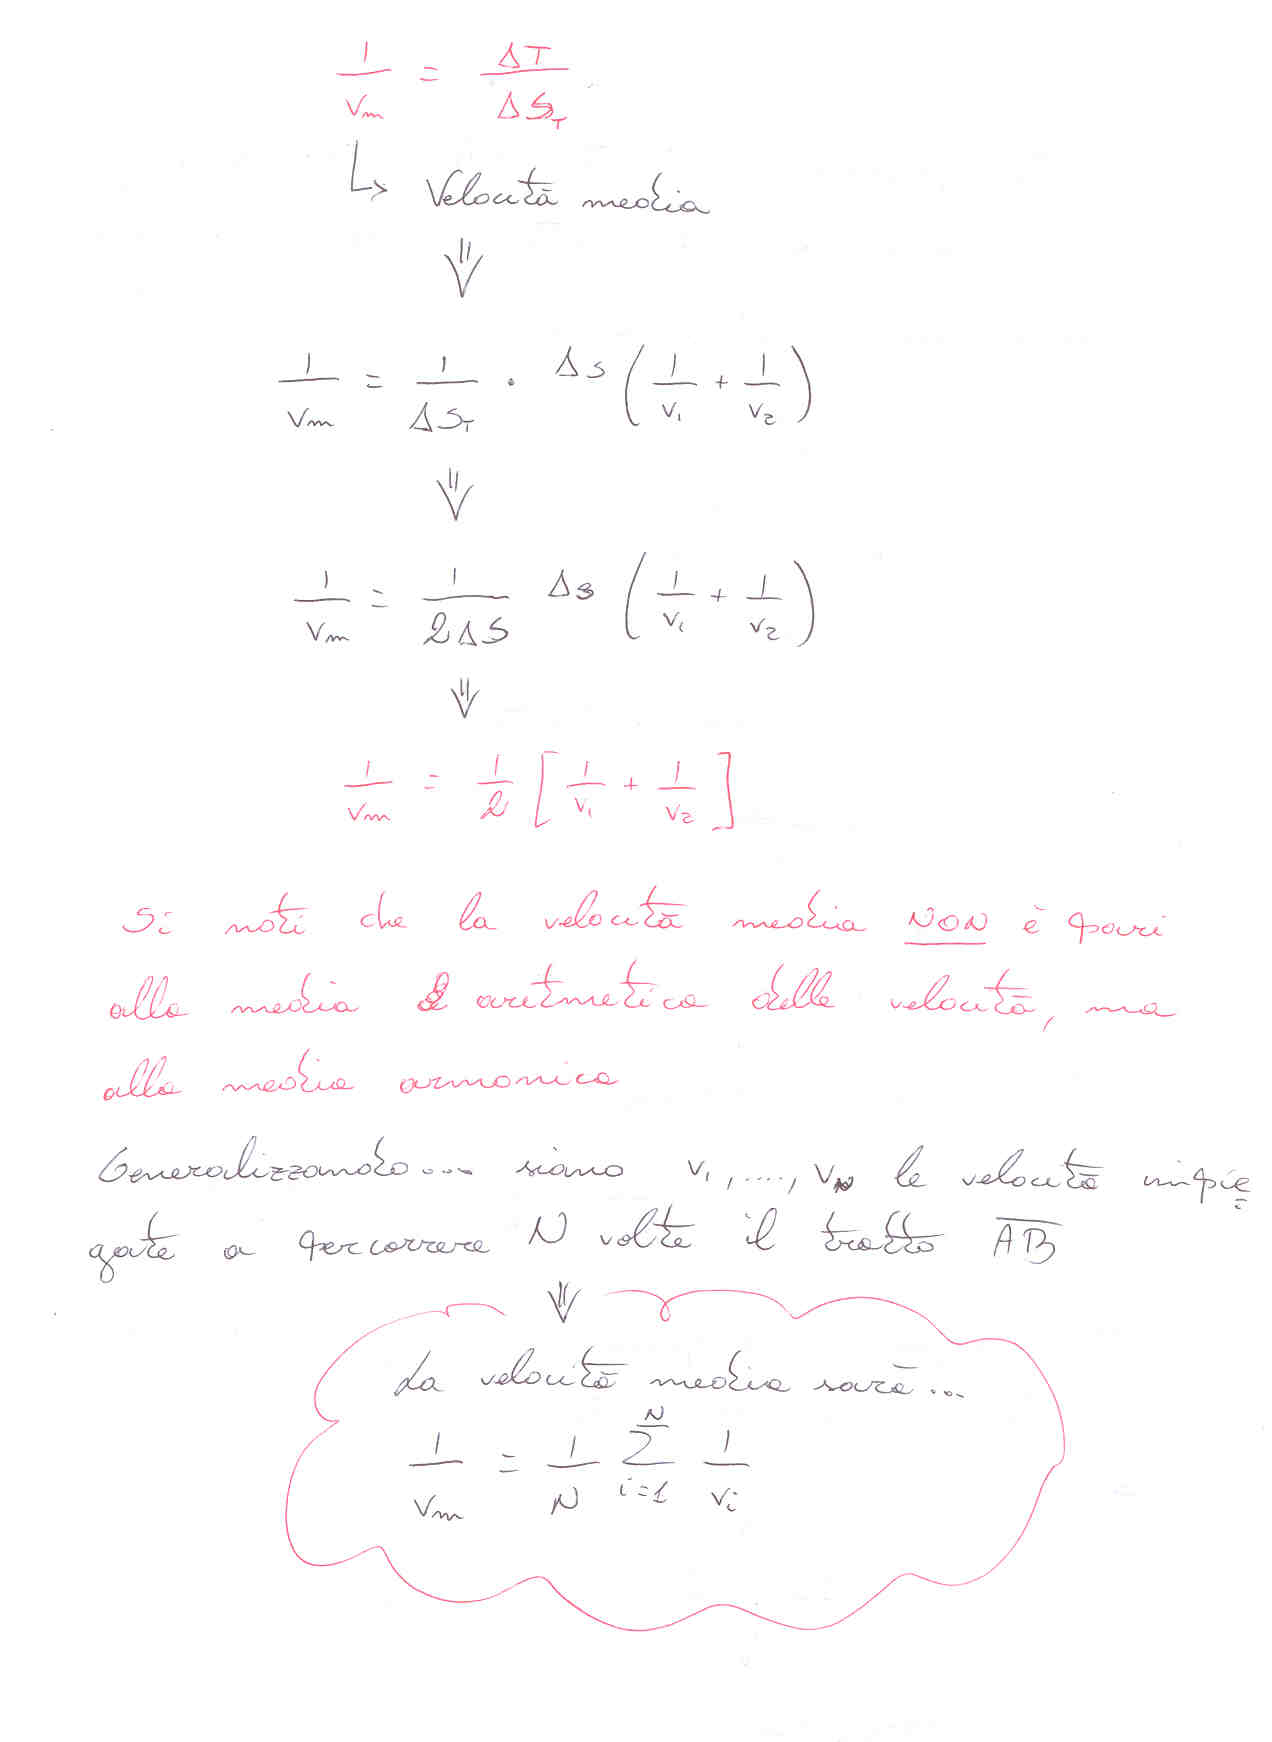 1/vm = ΔT/ΔS_T
↳ Velocità media
⇓
1/vm = 1/ΔS_T · Δs (1/v₁ + 1/v₂)
⇓
1/vm = 1/2ΔS Δs (1/v₁ + 1/v₂)
⇓
1/vm = 1/2 [1/v₁ + 1/v₂]
Si noti che la velocità media NON è pari
alla media aritmetica delle velocità, ma
alla media armonica
Generalizzando... siano v₁, ...., v_N le velocità impie
gate a percorrere N volte il tratto A̅B̅
⇓
La velocità media sarà...
1/vm = 1/N ∑_{i=1}^{N} 1/vᵢ